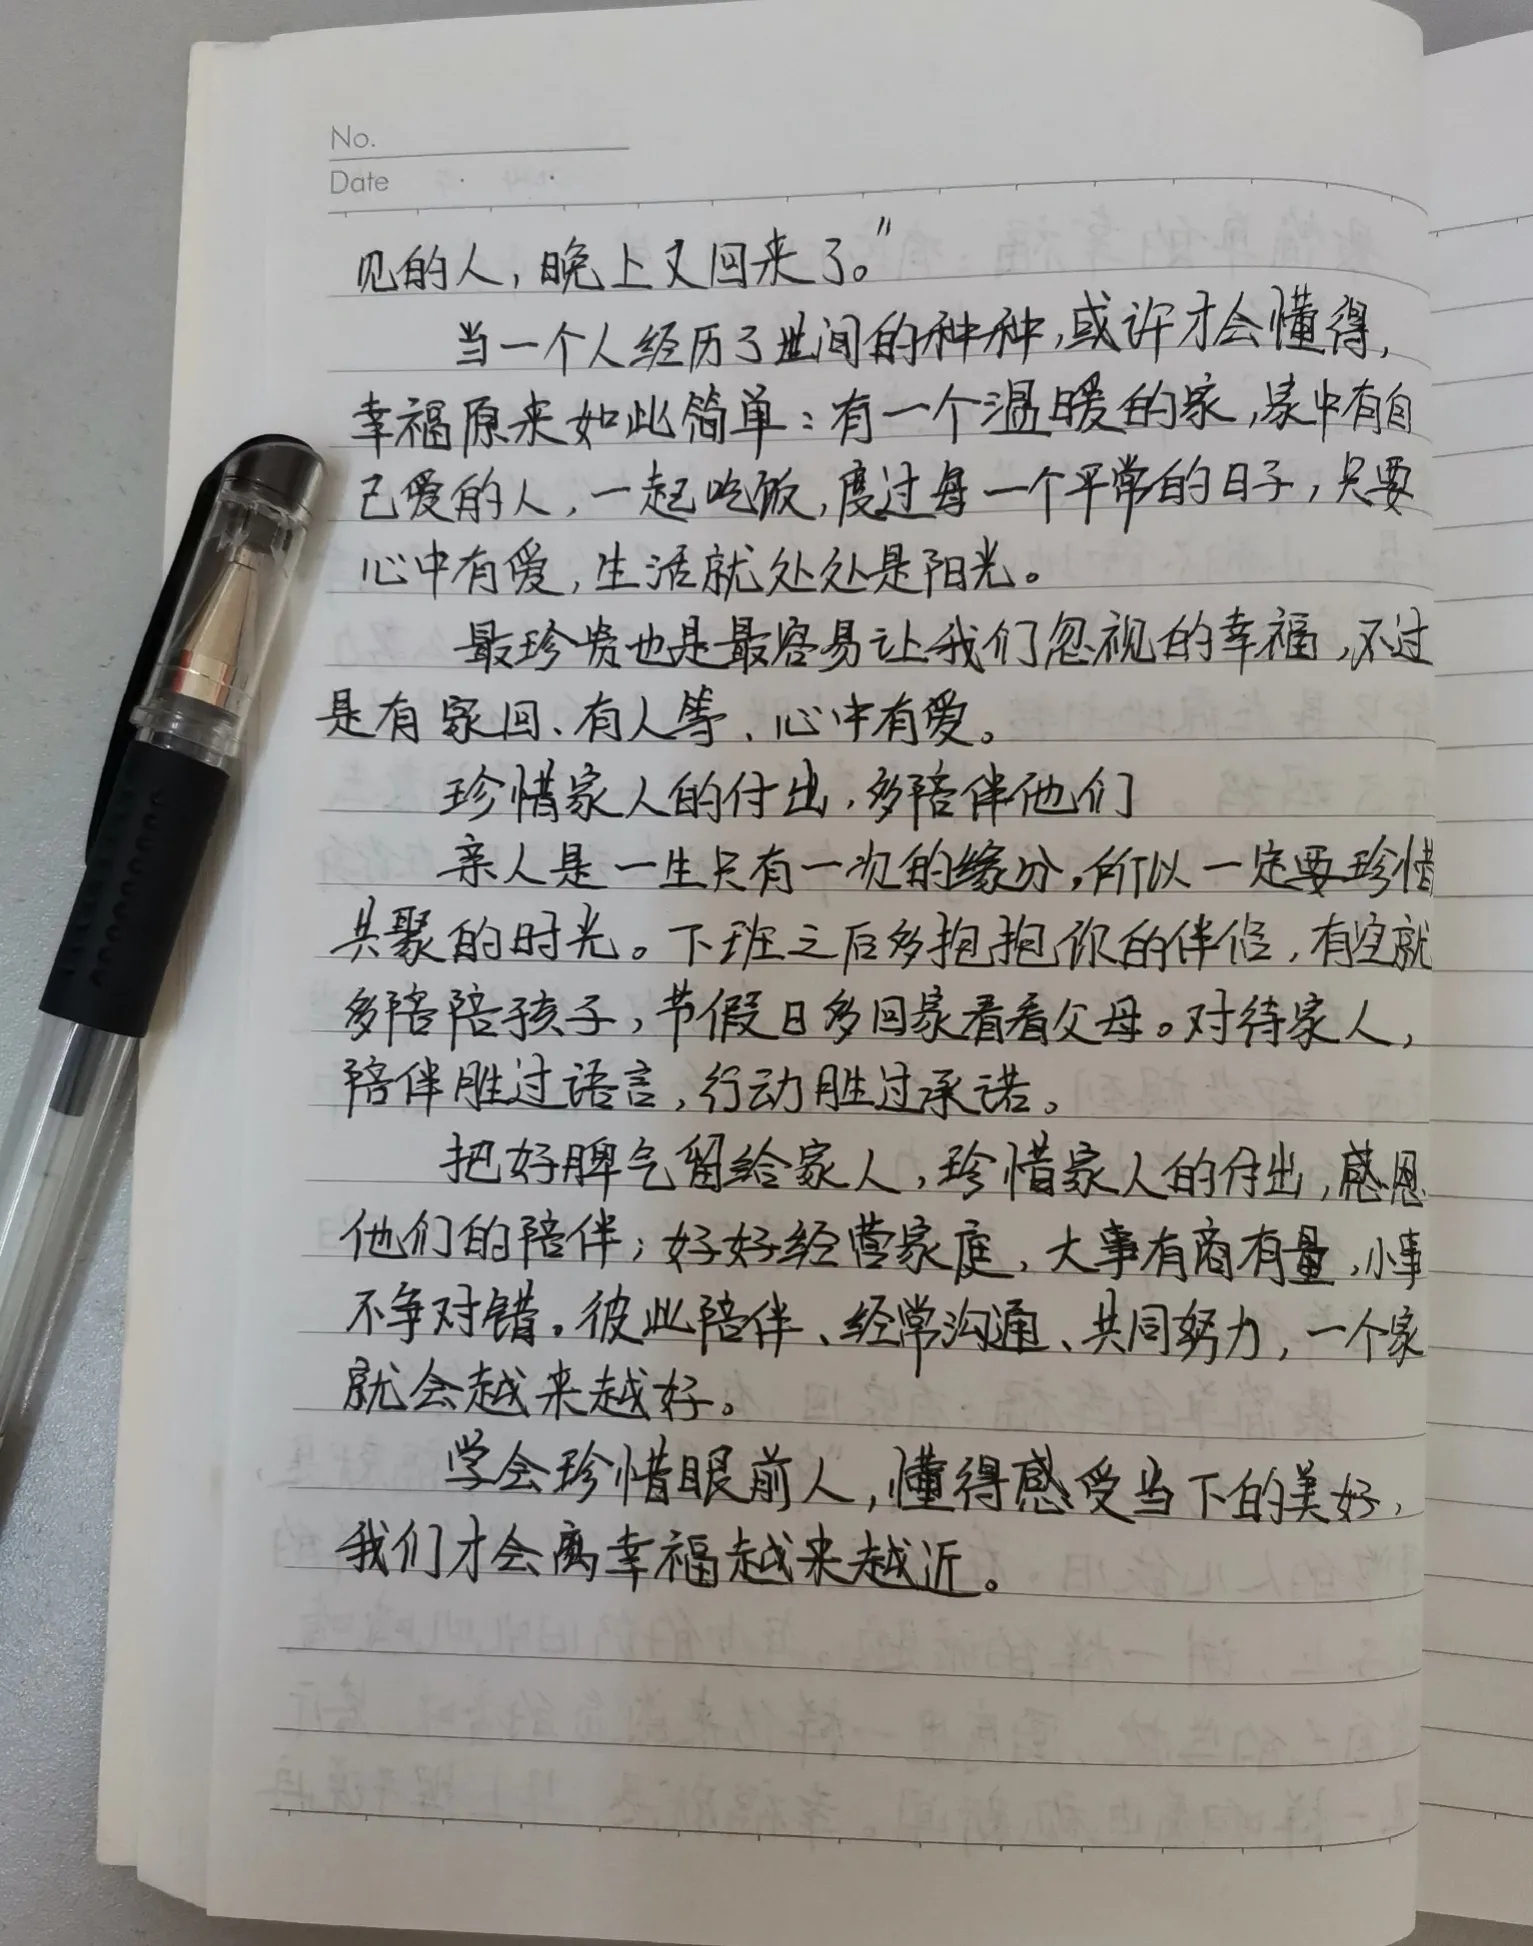 No.
Date
见的人，晚上又回来了。”
当一个人经历了世间的种种，或许才会懂得，
幸福原来如此简单：有一个温暖的家，家中有自
己爱的人，一起吃饭，度过每一个平常的日子，只要
心中有爱，生活就处处是阳光。
最珍贵也是最容易让我们忽视的幸福，不过
是有家回、有人等、心中有爱。
珍惜家人的付出，多陪伴他们
亲人是一生只有一次的缘分，所以一定要珍惜
共聚的时光。下班之后多抱抱你的伴侣，有空就
多陪陪孩子，节假日多回家看看父母。对待家人，
陪伴胜过语言，行动胜过承诺。
把好脾气留给家人，珍惜家人的付出，感恩
他们的陪伴；好好经营家庭，大事有商有量，小事
不争对错。彼此陪伴、经常沟通、共同努力，一个家
就会越来越好。
学会珍惜眼前人，懂得感受当下的美好，
我们才会离幸福越来越近。